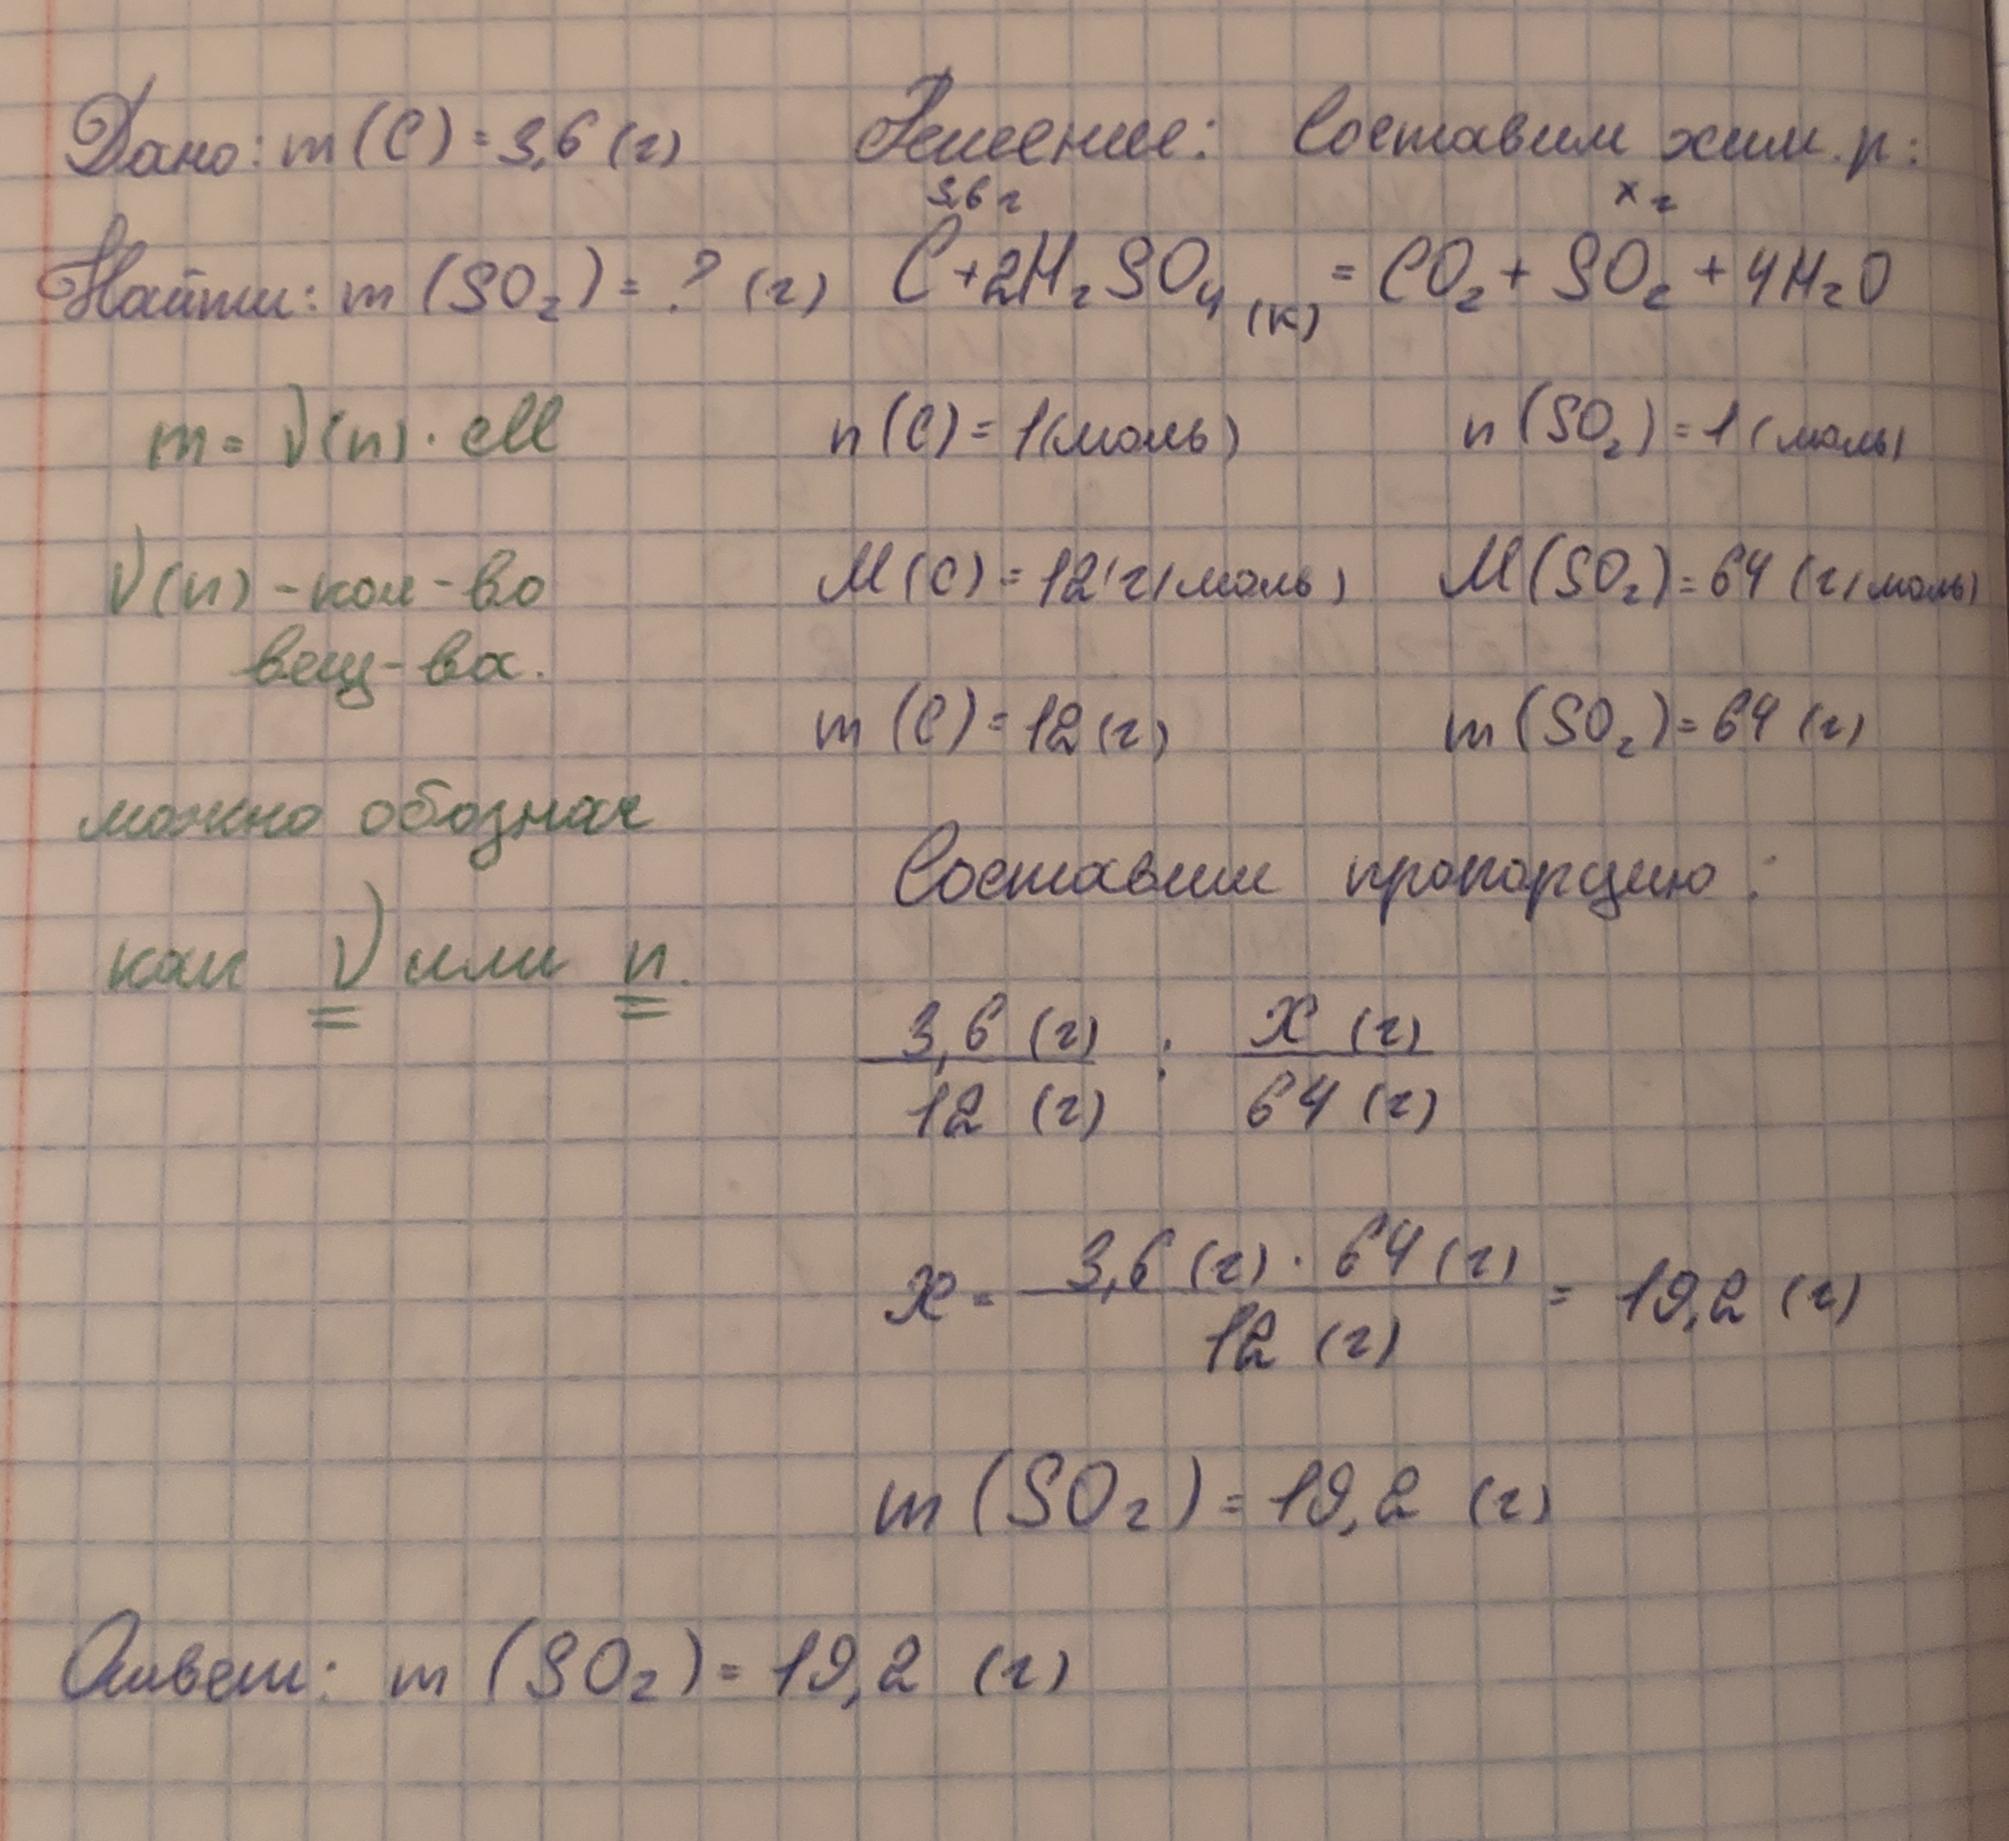 Дано: m (C) = 3,6 (г) Решение: Составим хим. р:
3,6 г x г
Найти: m (SO₂) = ? (г) C + 2H₂SO₄ (к) = CO₂ + SO₂ + 4H₂O
m = ν(n) · M n (C) = 1 (моль) n (SO₂) = 1 (моль)
ν(n) - кол-во M (C) = 12 (г/моль) M (SO₂) = 64 (г/моль)
вещ-ва.
m (C) = 12 (г) m (SO₂) = 64 (г)
можно обознач
Составим пропорцию:
как ν или n.
3,6 (г) : x (г)
12 (г) 64 (г)
x = 3,6 (г) · 64 (г) = 19,2 (г)
12 (г)
m (SO₂) = 19,2 (г)
Ответ: m (SO₂) = 19,2 (г)